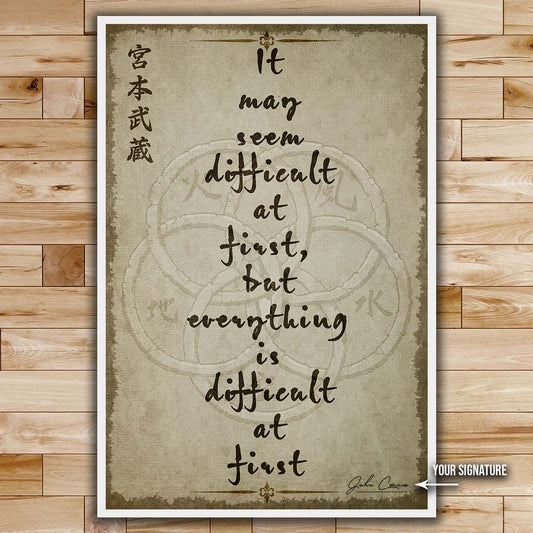 宮本武蔵
It
may
seem
difficult
at
first,
but
everything
is
difficult
at
first
火
風
地
水
YOUR SIGNATURE